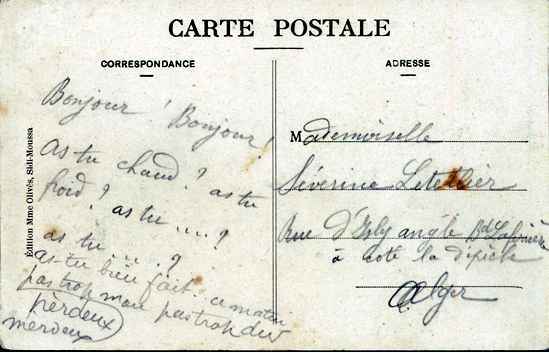 CARTE POSTALE
CORRESPONDANCE
ADRESSE
Édition Mme Olivès, Sidi-Moussa
Bonjour ! Bonjour !
as tu chaud ? as tu
froid ? as tu ....?
as tu ....?
as tu bien fait ce matin
pas trop mou pas trop dur
perdeux
merdeux
Mademoiselle
Séverine Letellier
Rue d'Isly angle Bd Laferrière
à coté la dépêche
Alger